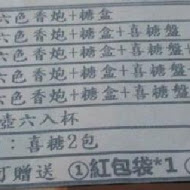 六色香炮+糖盒
六色香炮+糖盒
六色香炮+糖盒+喜糖盤
六色香炮+糖盒+喜糖盤
六色香炮+糖盒+喜糖盤
壺六入杯
：喜糖2包
可贈送 ①紅包袋*1